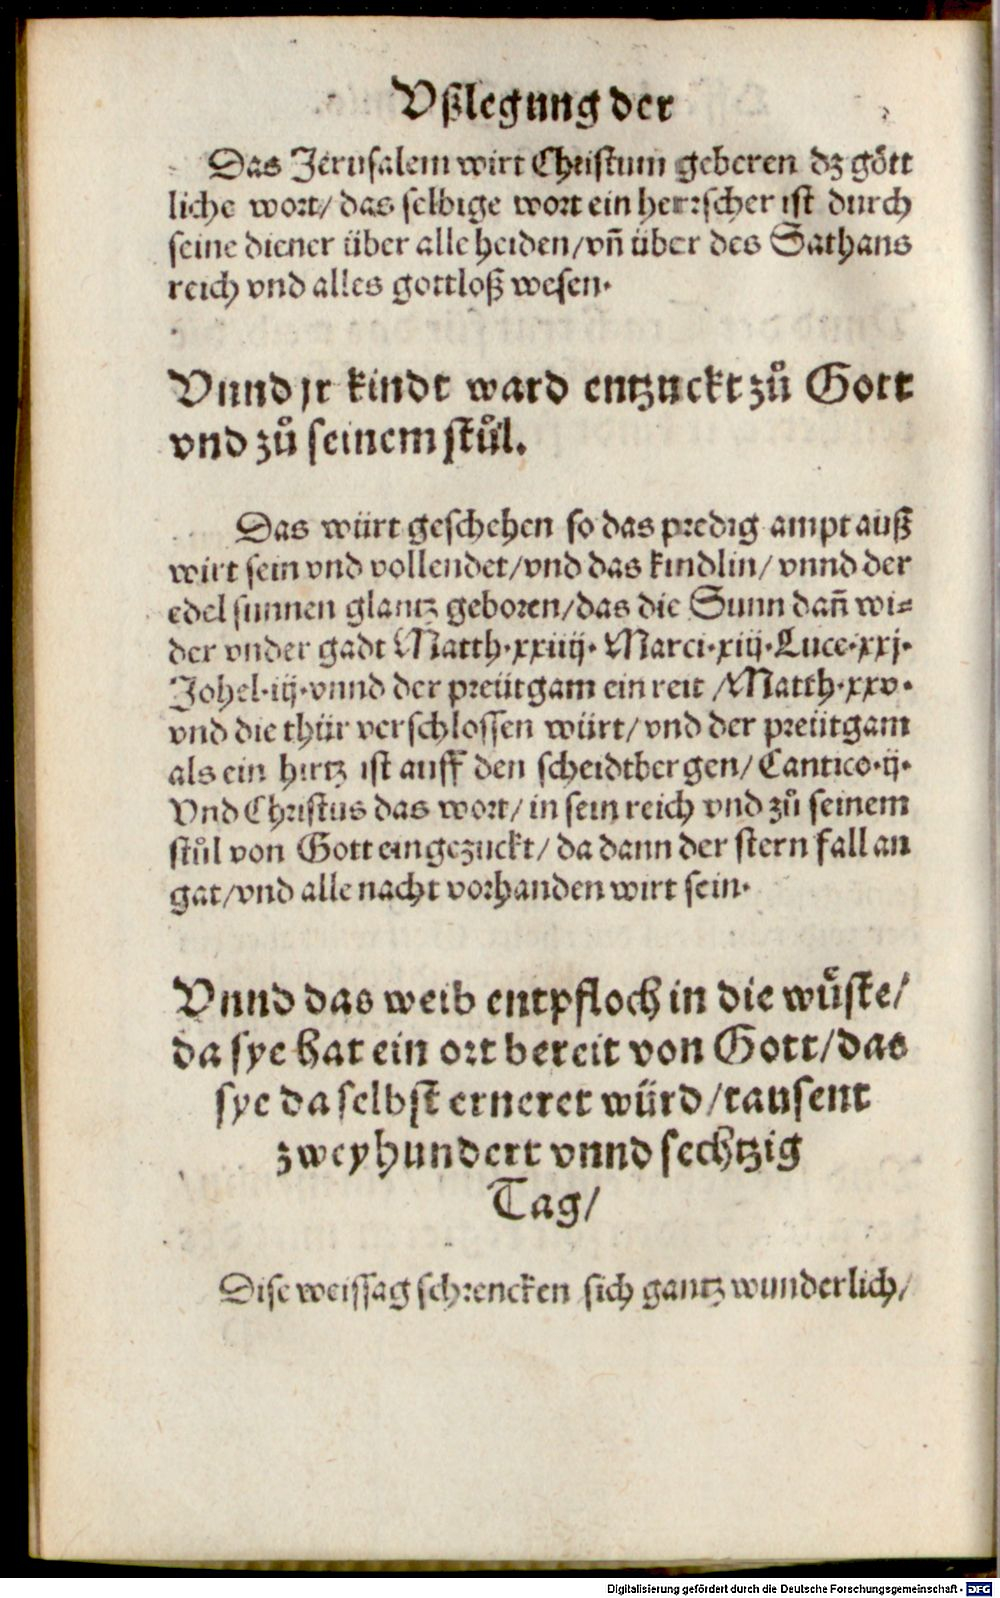 Vßlegung der
Das Jerusalem wirt Christum geberen dz gött
liche wort/ das selbige wort ein herrscher ist durch
seine diener über alle heiden/vñ über des Sathans
reich vnd alles gottloß wesen.
Vnnd jr kindt ward entzuckt zů Gott
vnd zů seinem stůl.
Das würt geschehen so das predig ampt auß
wirt sein vnd vollendet/vnd das kindlin/ vnnd der
edel sunnen glantz geboren/das die Sunn dañ wi=
der vnder gadt Matth.xxiiij. Marci.xiij.Luce.xxj.
Johel.iij.vnnd der preütgam ein reit /Matth.xxv.
vnd die thür verschlossen würt/ vnd der preütgam
als ein hirtz ist auff den scheidtbergen/ Cantico.ij.
Vnd Christus das wort/ in sein reich vnd zů seinem
stůl von Gott eingezuckt/ da dann der stern fall an
gat/vnd alle nacht vorhanden wirt sein.
Vnnd das weib entpfloch in die wůste/
da sye hat ein ort bereit von Gott/das
sye da selbst erneret würd/tausent
zweyhundert vnnd sechtzig
Tag/
Dise weissag schrencken sich gantz wunderlich/
Digitalisierung gefördert durch die Deutsche Forschungsgemeinschaft - DFG